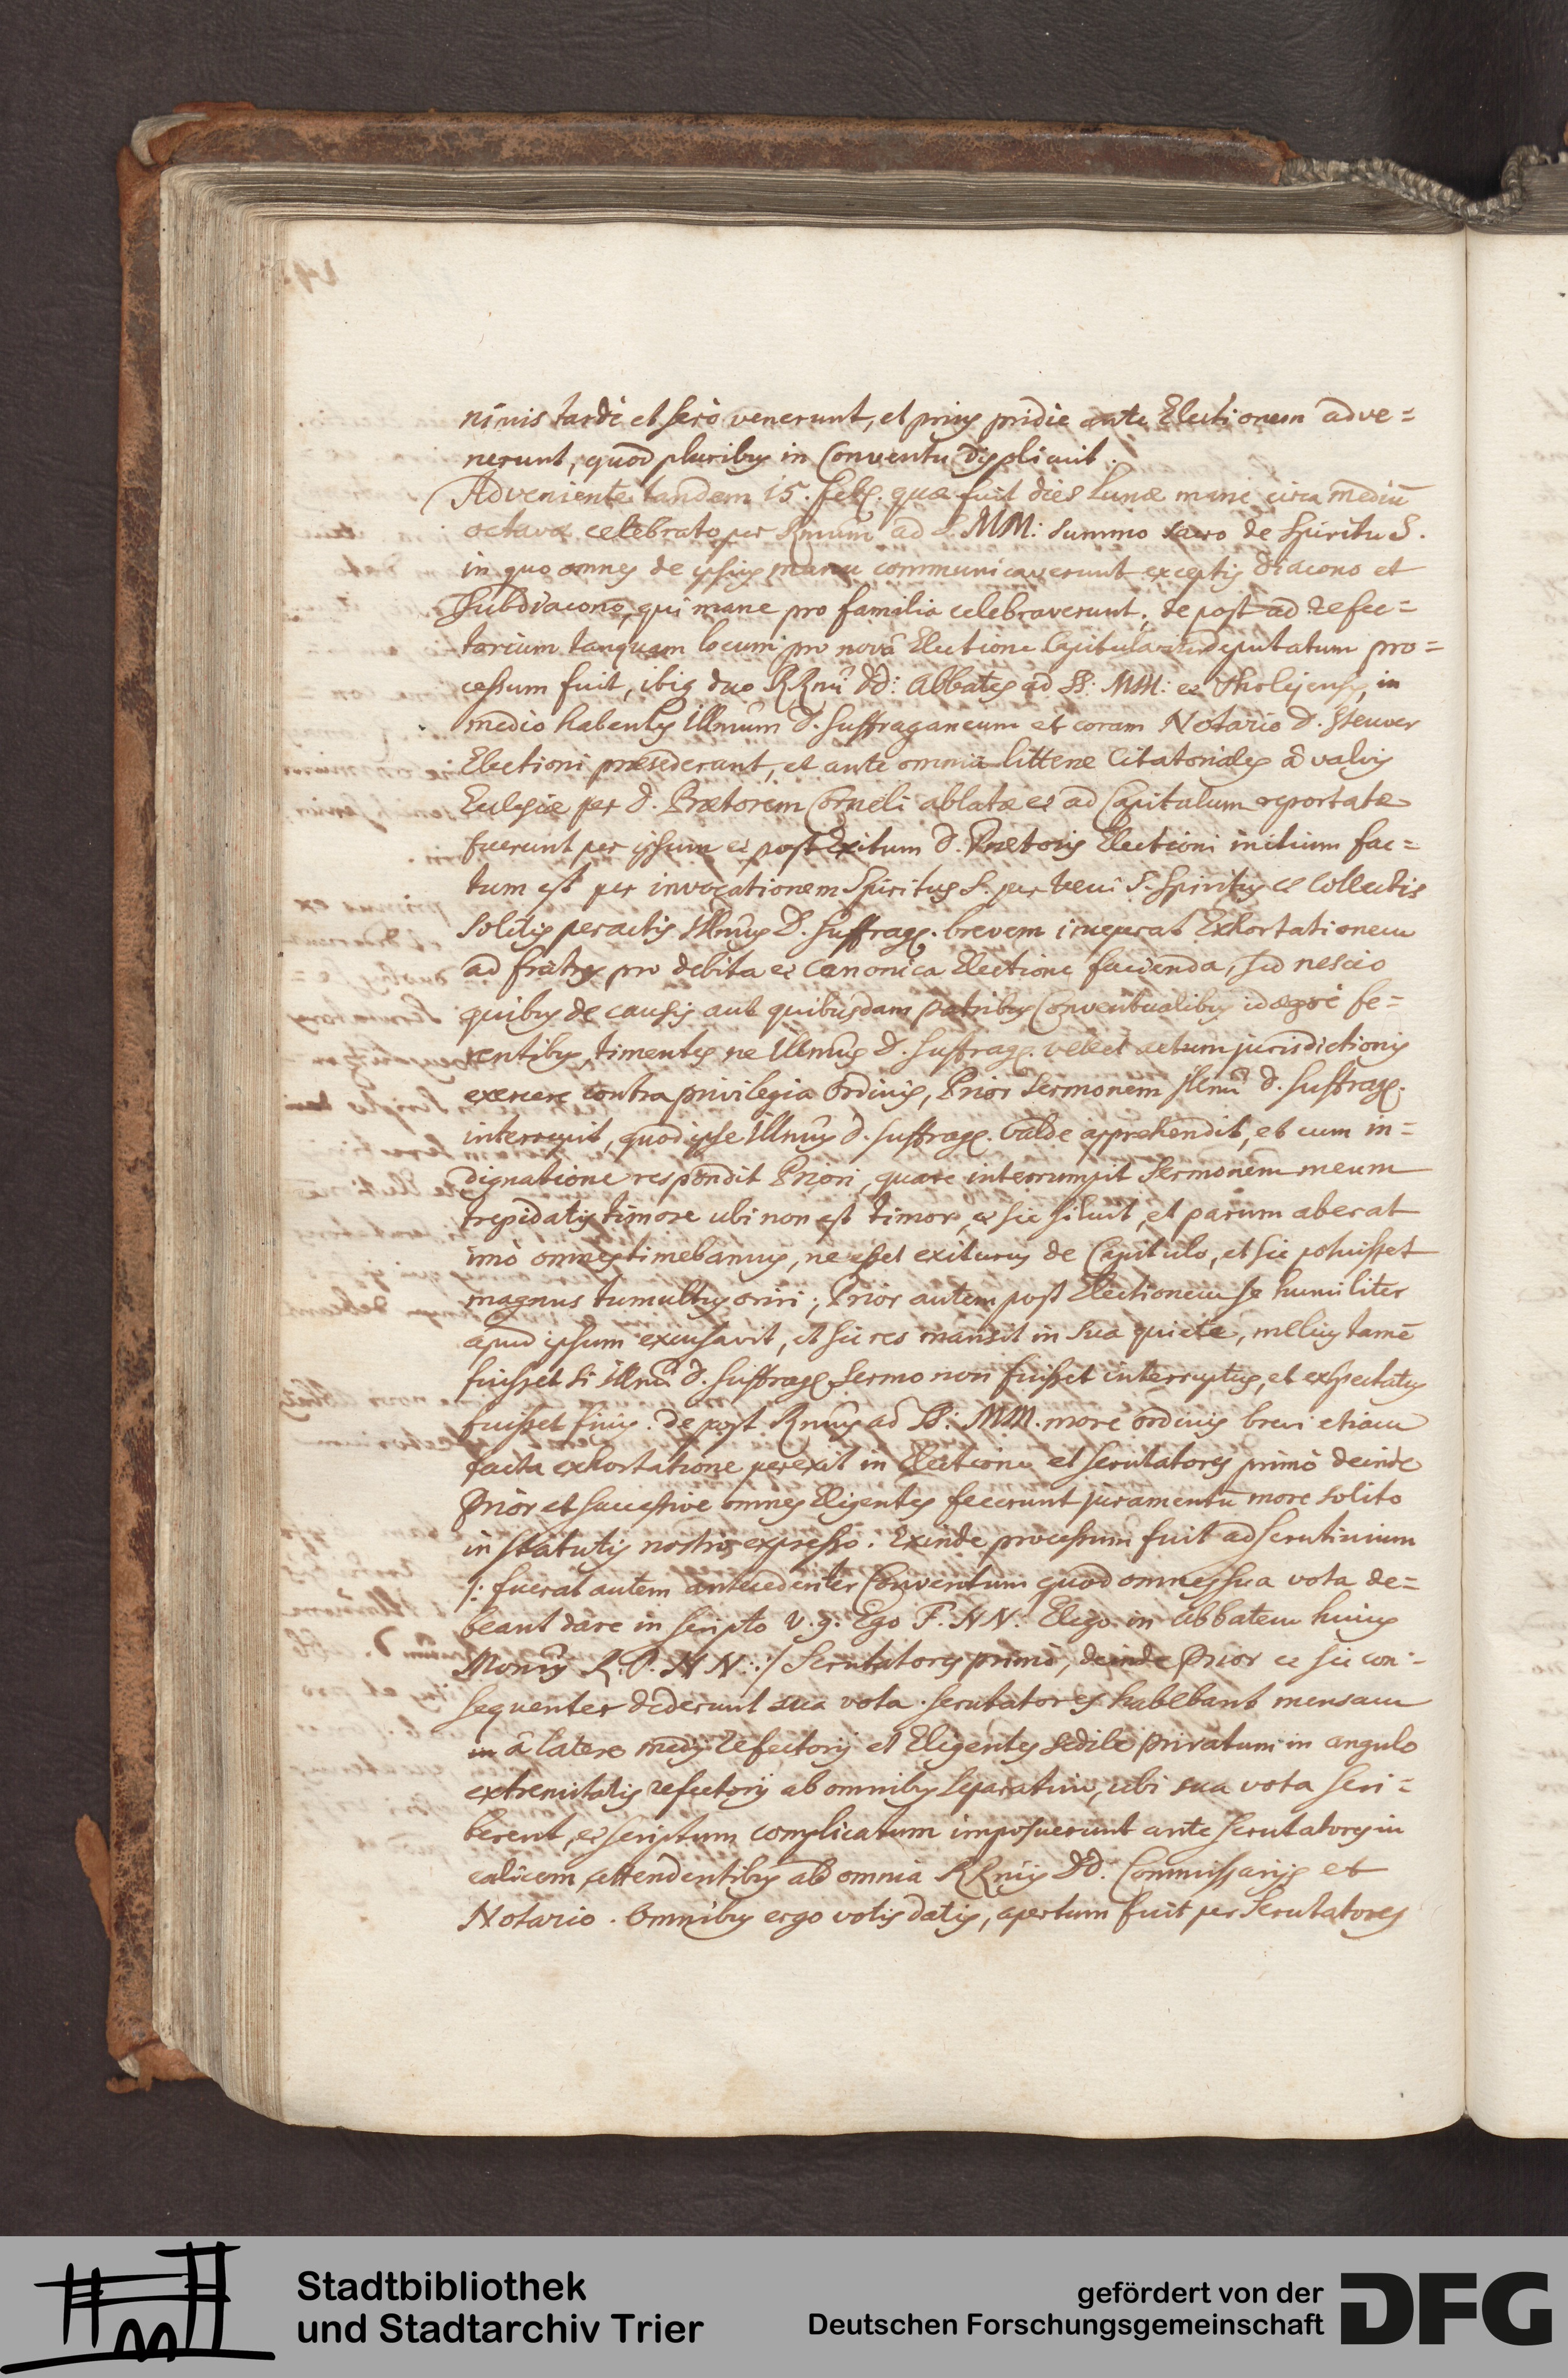 nimis tardè et serò venerunt, et prius pridie ante Electionem adve=
nerunt, quod pluribus in Conventu displicuit.
Adveniente tandem 15. feb. quae fuit dies Lunae mane circa mediū
octava celebrato per Rmum ad S. MM: summo sacro de Spiritu S.
in quo omnes de ipsius manu communicaverunt exceptis Diacono et
Subdiacono, qui mane pro familia celebraverunt, de post ad refec=
torium tanquam locum pro novâ Electione deputatum pro=
cessum fuit, ibiq duo RRmi dd: Abbates ad SS: MM: et Tholejensis, in
medio habentes Illmum D. Suffraganeum et coram Notario D. Steuver
Electioni praesederant, et ante omnia litterae Citatoriales â valvis
Ecclesiae per D. Praetorem Corneli ablatae et ad Capitulum reportatae
fuerunt per ipsum et post Exitum D. Praetoris Electioni initium fac=
tum est per invocationem Spiritus S. per veni S. Spiritus et Collectis
solitis peractis Illmus D. Suffrag. brevem inceperat Exhortationem
ad fratres pro debita et Canonica Electione facienda, sed nescio
quibus de causis aut quibusdam Patribus Conventualibus id aegrè fe=
rentibus, timentes ne Illmus D. Suffrag. vellet actum jurisdictionis
exercere contra privilegia Ordinis, Prior Sermonem Illmi D. Suffrag.
interrupit, quod ipse Illmus D. Suffrag. valde apprehendit, et cum in=
dignatione respondit Priori, quare interrumpit Sermonem meum
trepidatis timore ubi non est timor, et sic siluit, et parum aberat
imò omnes timebamus, ne esset exiturus de Capitulo, et sic potuisset
magnus tumultus oriri; Prior autem post Electionem se humiliter
apud ipsum excusavit, et sic res mansit in sua quiete, melius tamē
fuisset si Illmi D. Suffrag. Sermo non fuisset interruptus, et exspectatus
fuisset finis. de post Rmus ad SS: MM. more ordinis brevi etiam
facta exhortatione perexit in Electione et Scrutatores primò deinde
Prior et successive omnes Eligentes fecerunt juramentū more solito
in Statutis nostris expresso. Exinde processum fuit ad Scrutinium
/: fuerat autem antecedenter Conventum quod omnes sua vota de=
beant dare in scripto v. g. Ego F. NN. Eligo in Abbatem huius
Monrÿ R. P. N N: :/ Scrutatores primò, deinde Prior et sic con=
sequenter dederunt sua vota. scrutatores habebant mensam
in â latere medÿ refectorÿ et Eligentes sedile privatum in angulo
extremitatis refectorÿ ab omnibus separatim, ubi sua vota scri=
berent, et scriptum complicatum imposuerunt ante scrutatores in
calicem, attendentibus ad omnia RRmis DD. Commissarÿs et
Notario. Omnibus ergo votis datis, apertum fuit per Scrutatores
Stadtbibliothek
und Stadtarchiv Trier
gefördert von der
Deutschen Forschungsgemeinschaft
DFG